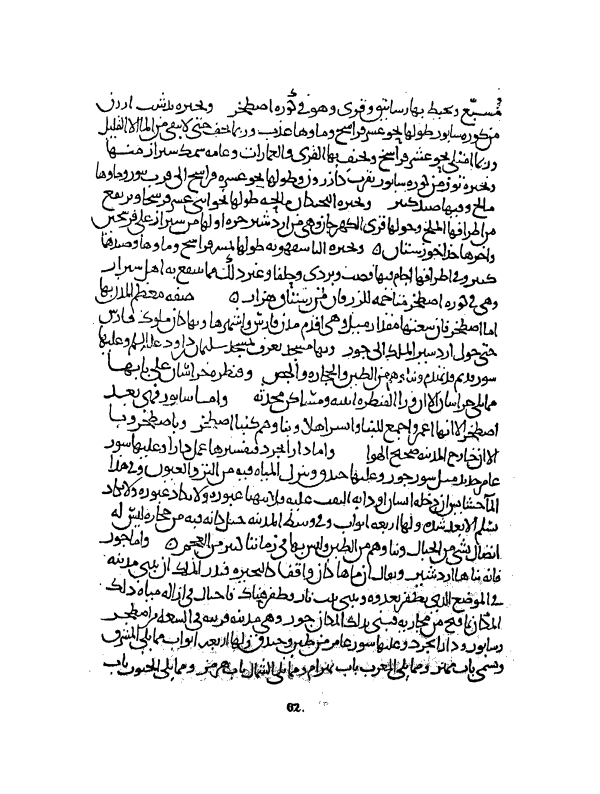 وتحيط بها رساتيق وقرى وهو في كوره اصطخر وبحيره بدشت ارزن
من كوره سابور طولها نحو عشر فراسخ وماوها عذب وربما تجف حتى لا يبقى من الما الا القليل
وربما امتلى نحو عشر فراسخ القرى والعمارات وعامه سمك شيراز منها
وبحيره توز من كوره سابور بقرب كازرون وطولها نحو عشره فراسخ الى قرب وماوها
مالح وفيها صيد كثير وبحيره مالحه طولها نحو اثنى عشر فرسخا ويرتفع
من اطرافها الملح وحولها قرى الكهرجان وهي من اردشير خره اولها من شيراز على فرسخين
واخرها حد خوزستان وبحيره الباسفهويه طولها فراسخ وماوها وصيدها
كثير وفي اطرافها اجام فيها قصب وبردي وحلفا وغير ذلك مما ينتفع به اهل شيراز
وهي في كوره اصطخر متاخمه للزرقان من رستاق هزار صفه معظم المدن بها
اما اصطخر فان سعتها مقدار ميل وهي اقدم مدن فارس واشهرها وبها كان ملوك فارس
حتى حول اردشير الملك الى جور وبها مسجد يعرف بمسجد سليمان بن داود عليه السلم وعليها
سور قديم قد تهدم وبناوهم من الطين والحجاره والجص وقنطره خراسان على بابها
مما يلي خراسان الا ان ورا القنطره ابنيه ومساكن محدثه واما سابور فهي بعد
اصطخر الا انها اعمر واجمع للبنا واسر اهلا وبناوهم كبنا اصطخر وباصطخر وبا
الا ان خارج المدينه صحيح الهوا واما دارابجرد فتفسيرها عمل دارا وعليها سور
عامر جديد مثل سور جور وعليها خندق وتنزل المياه فيه من النز والعيون وفي هذا
الما حشيش ان دخله انسان او دابه التف عليه ولا يتهيا عبوره ولا يكاد
يسلم الا بعد شده ولها اربعه ابواب وفي وسط المدينه جبل كانه قبه من حجاره ليس له
اتصال بشي من الجبال وبناوهم من الطين وليس بها في زماننا كبير من العجم واما جور
فانه بناها اردشير ويقال ان ماها كان واقفا كالبحيره فنذر الملك ان يبني مدينه
في الموضع الذي يظفر بعدوه ويبني بيت نار فظفر هناك فاحتال في ازاله مياه ذلك
المكان بما فتح من مجاريه فبنى بذلك المكان جور وهي مدينه قريبه في السعه من اصطخر
وسابور ودارابجرد وعليها سور عامر من طين وخندق ولها اربعه ابواب مما يلي المشرق
ويسمى باب مهر ومما يلي المغرب باب بهرام ومما يلي الشمال باب هرمز ومما يلي الجنوب باب
62.